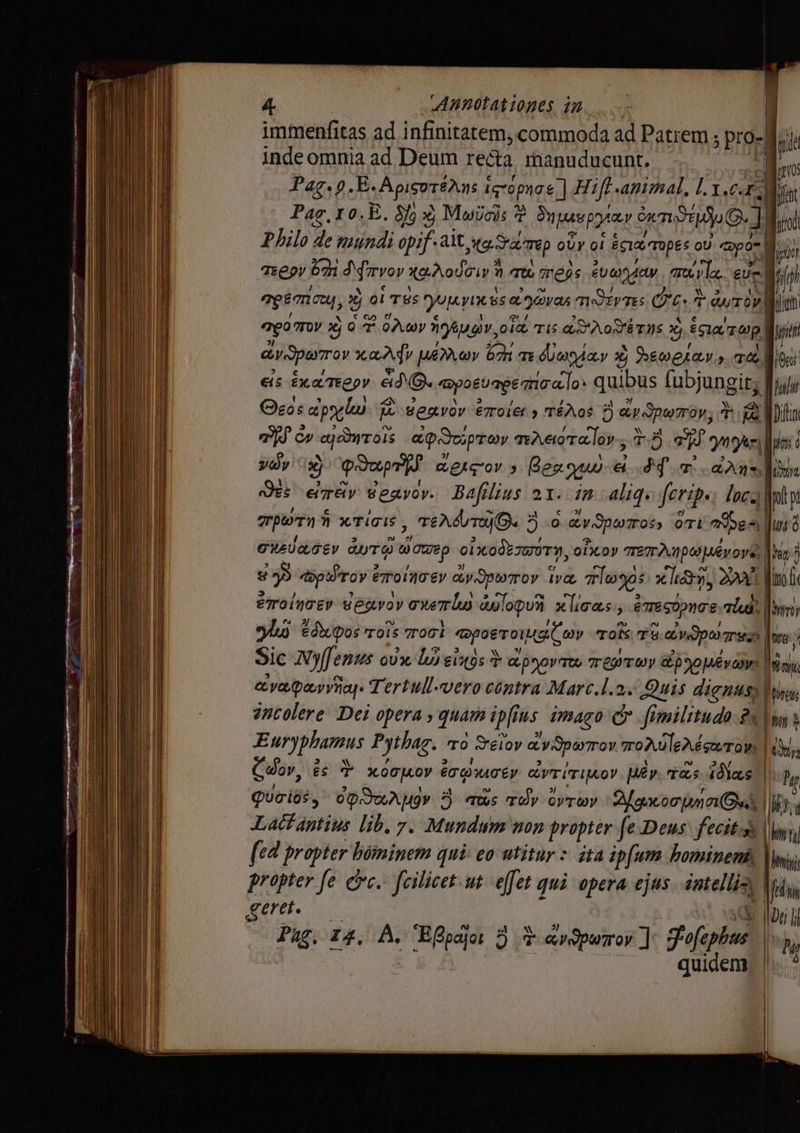 4 Annotationes in
immensitas ad infinitatem, commoda ad Patrem ; pro-
inde omnia ad Deum recta manuducunt.
Pag. 9. E. Ἀριστοτέλης ἱστόρησε ] Hist. animal. l. 1. c.
Pag. 10. E. διὸ καὶ Μωϋσῆς τ̃ δημιουργίαν ἐκτιθέμθυ .]
Philo de mundi opif. ait, καθάπερ οὖν οἱ ἑστιάτορες οὐ πρό-
τερον ἐπὶ δεῖπνον καλοῦσιν ἢ τὰ πρὸς εὐωχίαν πάντα εὐ-
πρέπισαι, καὶ οἱ τοὺς γυμνικοὺς ἀγῶνας τιθέντες &c. τ̃ αὐτὸν
τρόπον καὶ ὁ τ̃ ὅλων ἡγεμών, οἷά τις ἀθλοθέτης καὶ ἑστιάτωρ
ἄνθρωπον καλεῖν μέλλων ἐπί τε εὐωχίαν καὶ θεωρίαν, τὰ
εἰς ἑκάτερον εἶδος προευτρεπίσατο. quibus subjungit;
Θεὸς ἀρχὴν μὲν οὐρανὸν ἐποίει, τέλος δὲ ἄνθρωπον, τ̃ μὲν
τῶν ἐν αἰσθητοῖς ἀφθάρτων τελειότατον, τ̃ δὲ τῶν γηγε-
νῶν καὶ φθαρτῶν ἄριστον, βραχιὺ εἰ δεῖ τ' ἀλη-
θὲς εἰπεῖν οὐρανόν. Basilius 21. in aliq. scrip. loca
πρώτη ἡ κτίσις, τελευταῖος δὲ ὁ ἄνθρωπος, ὅτι
σκεύασεν αὐτῷ ὥσπερ οἰκοδεσπότῃ, οἶκον πεπληρωμένον.
οὐ γὸ πρῶτον ἐποίησεν ἄνθρωπον ἵνα πτωχὸς κτισθῇ, ἀλλ'
ἐποίησεν οὐρανὸν σκεπὴν αὐτοφυῆ κτίσας, ἐπεστόρησε τὴν
γῆν ἔδαφος τοῖς ποσὶ προετοιμάζων τοῖς τοῦ ἀνθρώπου
Sic Nyssenus οὐκ ἦν εἰκὸς τ̃ ἄρχοντα πρὸ τῶν ἀρχομένων
ἀναφανῆναι. Tertull. vero contra Marc. l. 2. Quis dignus
incolere Dei opera, quam ipsius imago & similitudo ?
Euryphamus Pythag. τὸ θεῖον ἄνθρωπον πολυτελέστατον
ζῷον, ἐς τ̃ κόσμον ἐσῴκισεν ἀντίτιμον μὲν τᾶς ἰδίας
φύσιος, ὀφθαλμὸν δὲ τᾶς τῶν ὄντων διακοσμήσιος.
Lactantius lib. 7. Mundum non propter se Deus fecit
sed propter hominem qui eo utitur : ita ipsum hominem
propter se &c. scilicet ut esset qui opera ejus intelli-
geret.
Pag. 14. A. Ἑβραῖοι δὲ τ̃ ἄνθρωπον ] Josephus
quidem